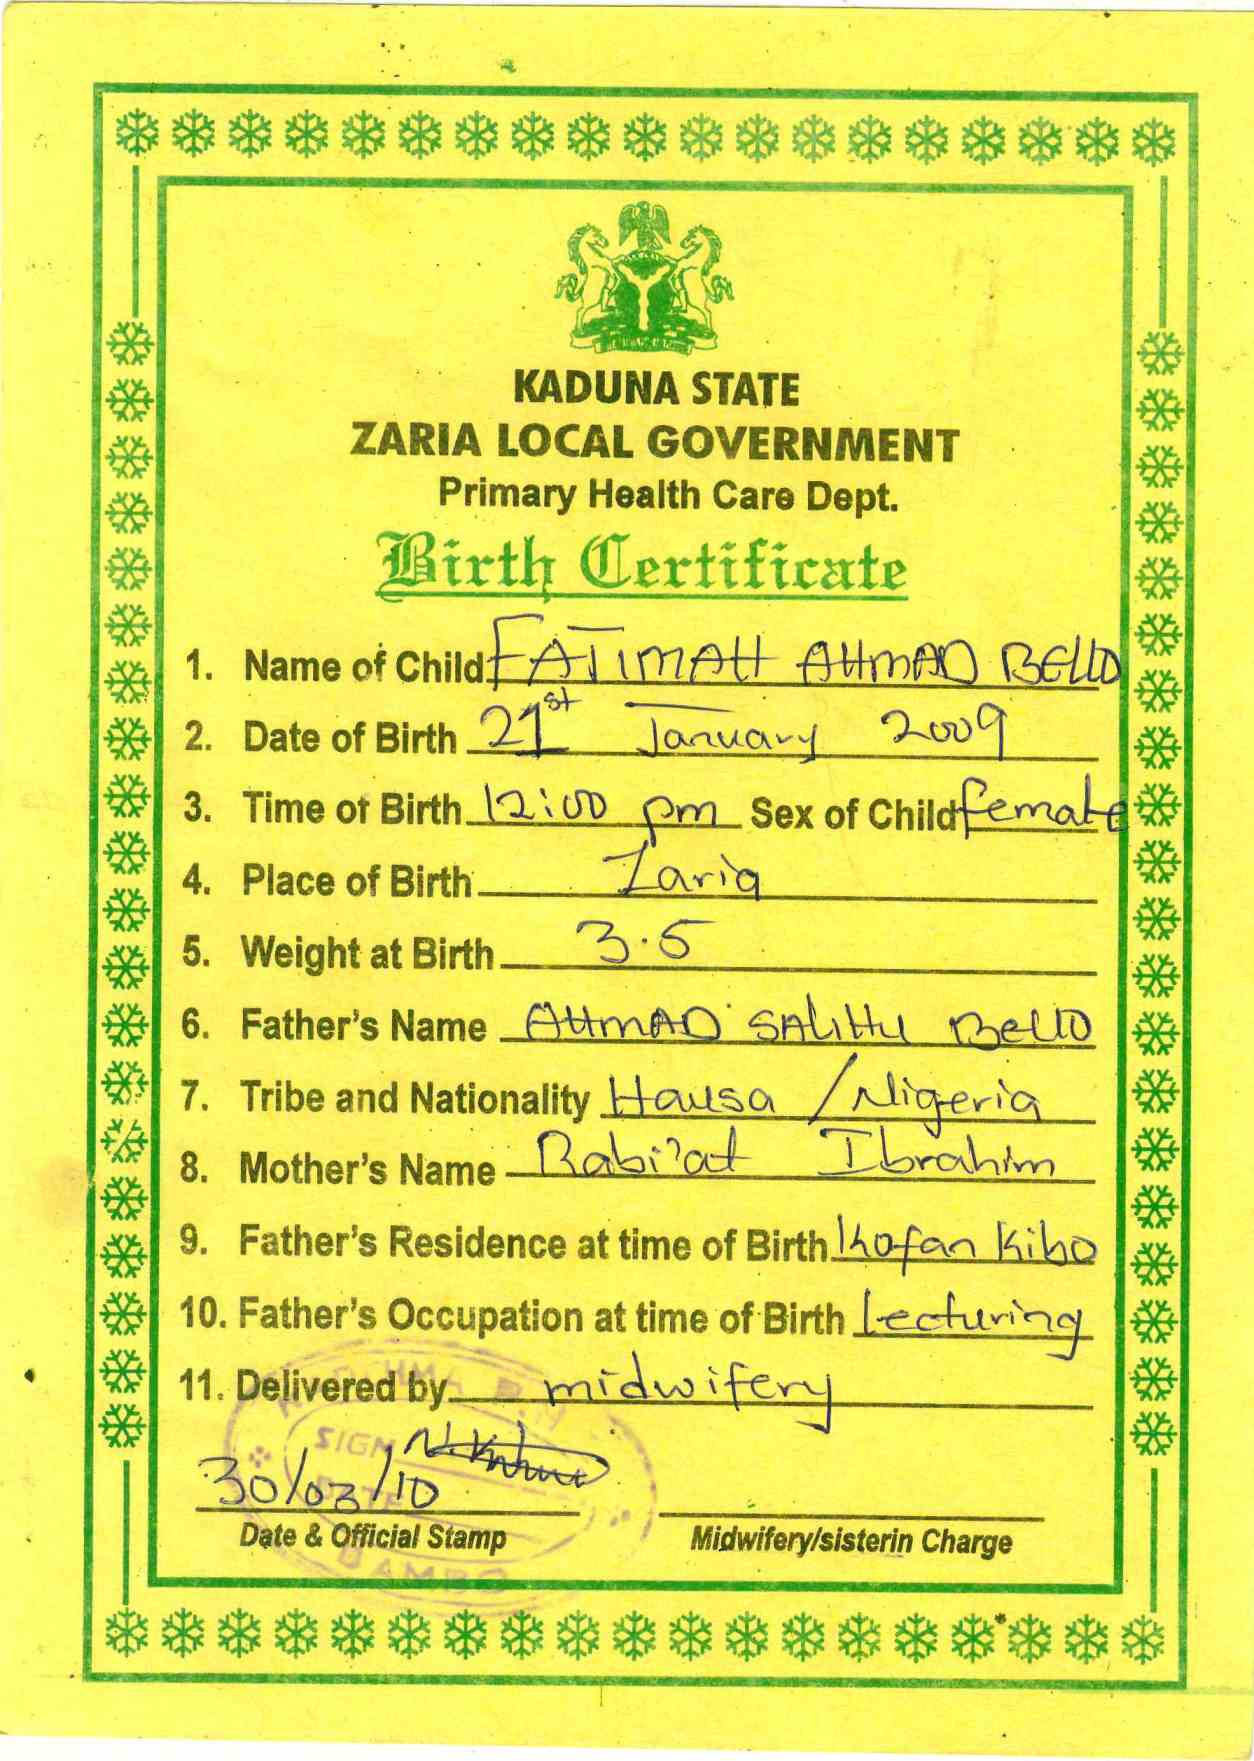 KADUNA STATE
ZARIA LOCAL GOVERNMENT
Primary Health Care Dept.
Birth Certificate
1. Name of Child FATIMAH AHMAD BELLO
2. Date of Birth 21st January 2009
3. Time of Birth 12:00 pm Sex of Child female
4. Place of Birth Zaria
5. Weight at Birth 3.5
6. Father's Name AHMAD SALIHU BELLO
7. Tribe and Nationality Hausa / Nigeria
8. Mother's Name Rabi'at Ibrahim
9. Father's Residence at time of Birth Kofan Kibo
10. Father's Occupation at time of Birth Lecturing
11. Delivered by midwifery
SIGN
30/03/10
DATE
Date & Official Stamp Midwifery/sisterin Charge
DAMBO